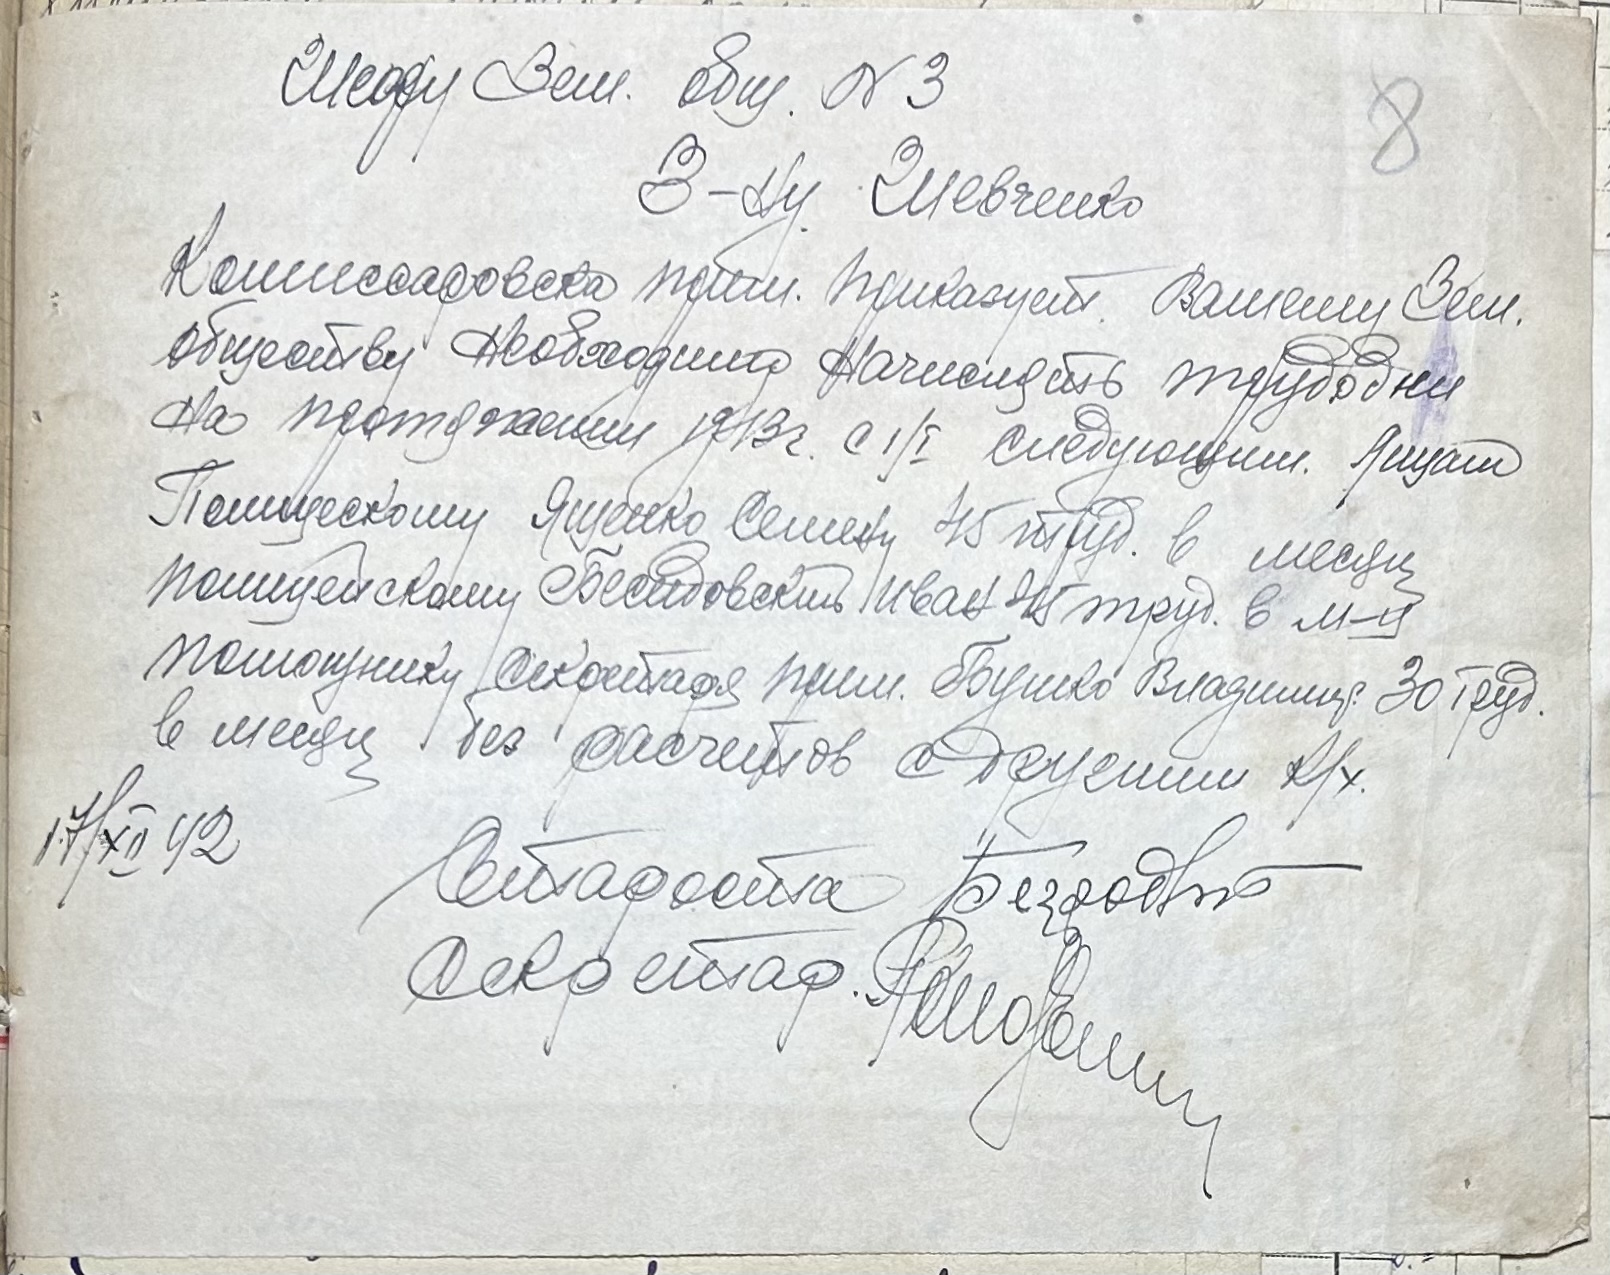 Шефу Зем. общ. N 3
8
З-ку. Шевченко
Комиссаровска прим. приказует. Вашему Зем.
обществу Необходимо Начислять трудодни
На протяжении 1943 г. с 1/I следующим. лицам
Полицескому Ященко Семену 45 труд. в месяц
полицейскому Беседовскить Иван 45 труд. в м-ц
помощнику секретаря прим. Бушко Владимир. 30 труд.
в месяц без расчетов с другими к/х.
17/XII 42
Староста
Секретар.